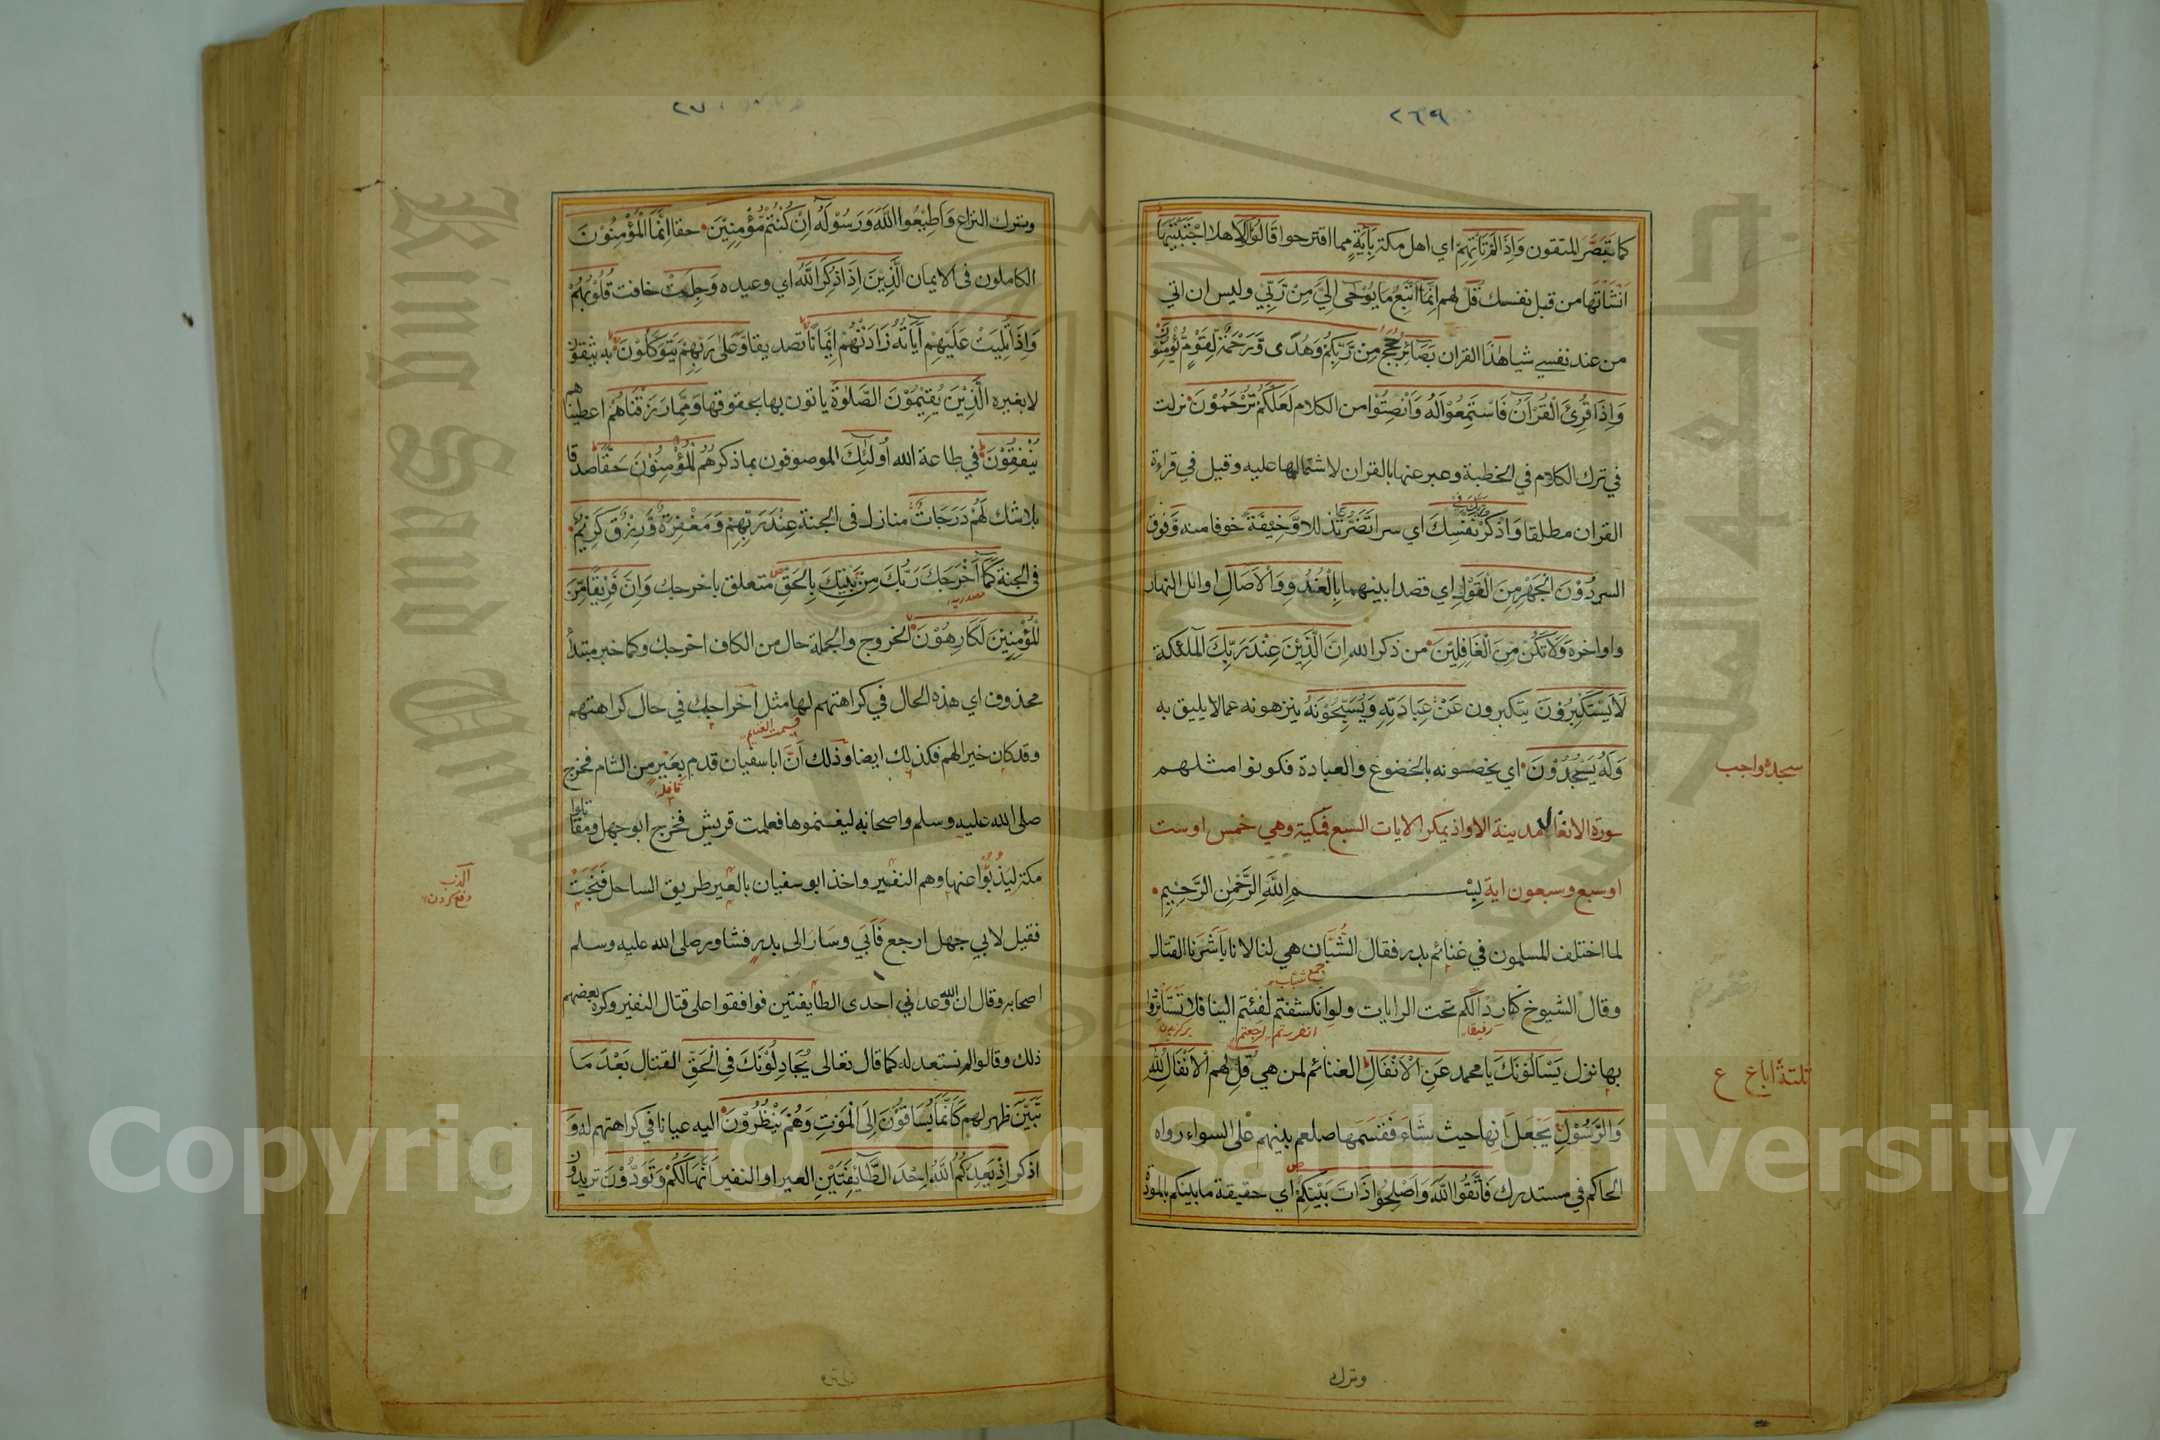 ٢٦٩
كما تبصر المتقون وَاِذَا لَمْ تَأْتِهِمْ اي اهل مكة بِآيَةٍ مما اقترحوا قَالُوْا لَوْلَا هلا اجْتَبَيْتَهَا
انشأتها من قبل نفسك قُلْ لهم اِنَّمَا اَتَّبِعُ مَا يُوْحٰى اِلَيَّ مِنْ رَّبِّي وليس ان اتي
من عند نفسي شيا هٰذَا القران بَصَائِرُ حجج مِنْ رَّبِّكُمْ وَهُدًى وَّرَحْمَةٌ لِّقَوْمٍ يُّؤْمِنُوْنَ
وَاِذَا قُرِئَ الْقُرْاٰنُ فَاسْتَمِعُوْا لَهُ وَاَنْصِتُوْا من الكلام لَعَلَّكُمْ تُرْحَمُوْنَ نزلت
في ترك الكلام في الخطبة وعبر عنها بالقران لاشتمالها عليه وقيل في قراءة
القران مطلقا وَاذْكُرْ رَبَّكَ فِي نَفْسِكَ اي سرا تَضَرُّعًا تذللا وَّخِيْفَةً خوفا منه وَّ فوق
السر دُوْنَ الْجَهْرِ مِنَ الْقَوْلِ اي قصدا بينهما بِالْغُدُوِّ وَالْاٰصَالِ اوائل النهار
واواخره وَلَا تَكُنْ مِنَ الْغَافِلِيْنَ من ذكر الله اِنَّ الَّذِيْنَ عِنْدَ رَبِّكَ الملئكة
لَا يَسْتَكْبِرُوْنَ يتكبرون عَنْ عِبَادَتِهِ وَيُسَبِّحُوْنَهُ ينزهونه عما لا يليق به
وَلَهُ يَسْجُدُوْنَ اي يخصونه بالخضوع والعبادة فكونوا مثلهم
سجده واجب
سورة الانفال مدينة الا واذ يمكر الايات السبع فمكية وهي خمس او ست
او سبع وسبعون اية بِسْمِ اللهِ الرَّحْمٰنِ الرَّحِيْمِ
لما اختلف المسلمون في غنائم بدر فقال الشُّبَّان هي لنا لانا باشرنا القتال
جمع شاب
وقال الشيوخ كنا ردا لكم تحت الرايات ولو انكشفتم لفئتم الينا فلا تستأثروا
بها نزل يَسْاَلُوْنَكَ يا محمد عَنِ الْاَنْفَالِ الغنائم لمن هي قُلِ لهم الْاَنْفَالُ لِلّٰهِ
وَالرَّسُوْلِ يجعلانها حيث شاء فقسمها صلعم بينهم على السواء رواه
الحاكم في مستدرك فَاتَّقُوا اللهَ وَاَصْلِحُوْا ذَاتَ بَيْنِكُمْ اي حقيقة ما بينكم بالمودة
وترك
٢٧٠
وترك النزاع وَاَطِيْعُوا اللهَ وَرَسُوْلَهُ اِنْ كُنْتُمْ مُّؤْمِنِيْنَ حقا اِنَّمَا الْمُؤْمِنُوْنَ
الكاملون في الايمان الَّذِيْنَ اِذَا ذُكِرَ اللهُ اي وعيده وَجِلَتْ خافت قُلُوْبُهُمْ
وَاِذَا تُلِيَتْ عَلَيْهِمْ اٰيَاتُهُ زَادَتْهُمْ اِيْمَانًا تصديقا وَّعَلٰى رَبِّهِمْ يَتَوَكَّلُوْنَ به يثقون
لا بغيره الَّذِيْنَ يُقِيْمُوْنَ الصَّلٰوةَ ياتون بها بحقوقها وَمِمَّا رَزَقْنَاهُمْ اعطيناهم
يُنْفِقُوْنَ في طاعة الله اُولٰئِكَ الموصوفون بما ذكر هُمُ الْمُؤْمِنُوْنَ حَقًّا صدقا
بلا شك لَهُمْ دَرَجَاتٌ منازل في الجنة عِنْدَ رَبِّهِمْ وَمَغْفِرَةٌ وَّرِزْقٌ كَرِيْمٌ
في الجنة كَمَا اَخْرَجَكَ رَبُّكَ مِنْ بَيْتِكَ بِالْحَقِّ متعلق باخرجك وَاِنَّ فَرِيْقًا مِّنَ
الْمُؤْمِنِيْنَ لَكَارِهُوْنَ الخروج والجملة حال من الكاف اخرجك وكما خبر مبتدأ
محذوف اي هذه الحال في كراهتهم لها مثل اخراجك في حال كراهتهم
قسمت الغنايم
وقد كان خيرا لهم فكذلك ايضا وذلك اَنَّ ابا سفيان قدم بعير من الشام فخرج
قافله
صلى الله عليه وسلم واصحابه ليغنموها فعلمت قريش فخرج ابو جهل ومقاتلوا
مكة ليذبوا عنها وهم النفير واخذ ابو سفيان بالعير طريق الساحل فنجت
الذب
دفع كردن
فقيل لابي جهل ارجع فابي وسار الى بدر فشاور صلى الله عليه وسلم
اصحابه وقال ان الله وعدني احدى الطايفتين فوافقوا على قتال النفير وكره بعضهم
ذلك وقالوا لم نستعد له كما قال تعالى يُجَادِلُوْنَكَ فِي الْحَقِّ القتال بَعْدَ مَا
تَبَيَّنَ ظهر لهم كَاَنَّمَا يُسَاقُوْنَ اِلَى الْمَوْتِ وَهُمْ يَنْظُرُوْنَ اليه عيانا في كراهتهم له وَ
اذكر اِذْ يَعِدُكُمُ اللهُ اِحْدَى الطَّائِفَتَيْنِ العير او النفير اَنَّهَا لَكُمْ وَتَوَدُّوْنَ تريدون
King Saud University
Copyright © King Saud University